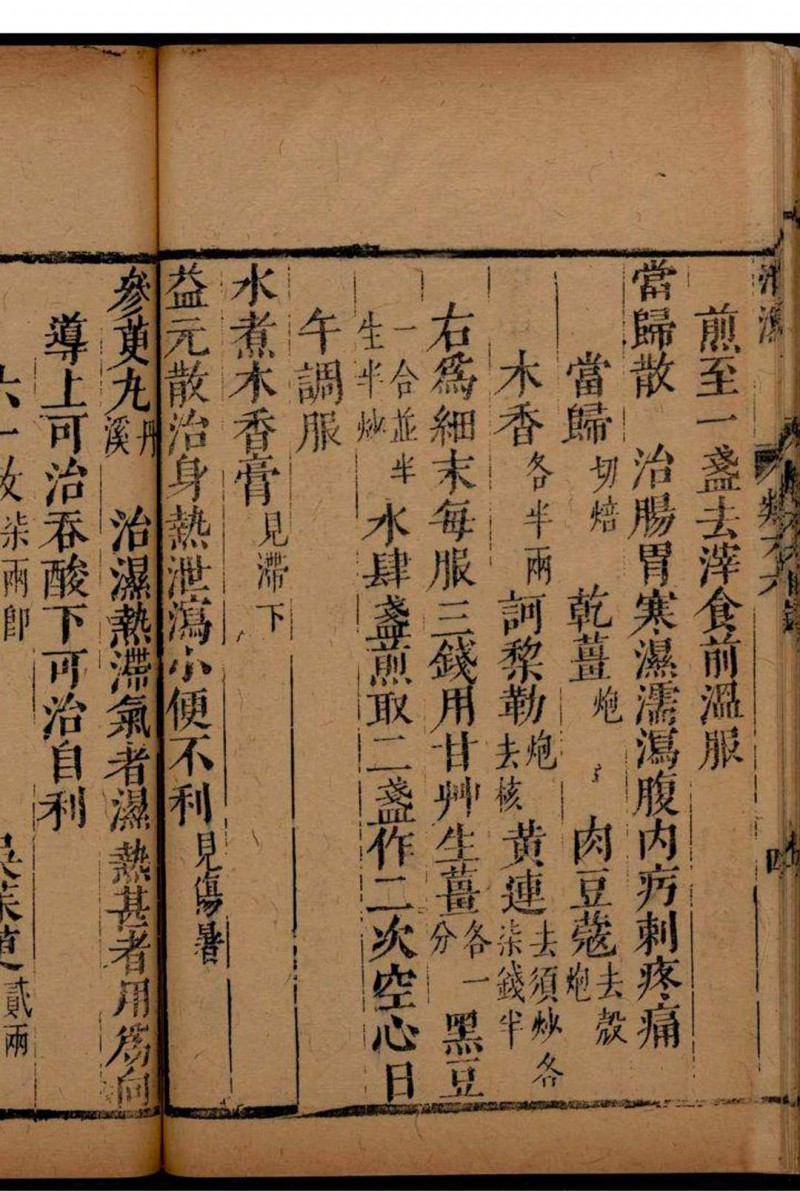 煎至一盞去滓食前溫服
當歸散　治腸胃寒濕濡瀉腹內㽲刺疼痛
當歸切焙　乾薑炮　肉豆蔻去殼炮
木香各半兩　訶黎勒炮去核　黃連去須炒各柒錢半
右爲細末每服三錢用甘艸生薑各一分黑豆
一合並半生半炒水肆盞煎取二盞作二次空心日
午調服
水煮木香膏見滯下
益元散治身熱泄瀉小便不利見傷暑
參萸丸丹溪　治濕熱滯氣者濕熱甚者用爲向
導上可治吞酸下可治自利
六一散柒兩卽　吳茱萸貳兩